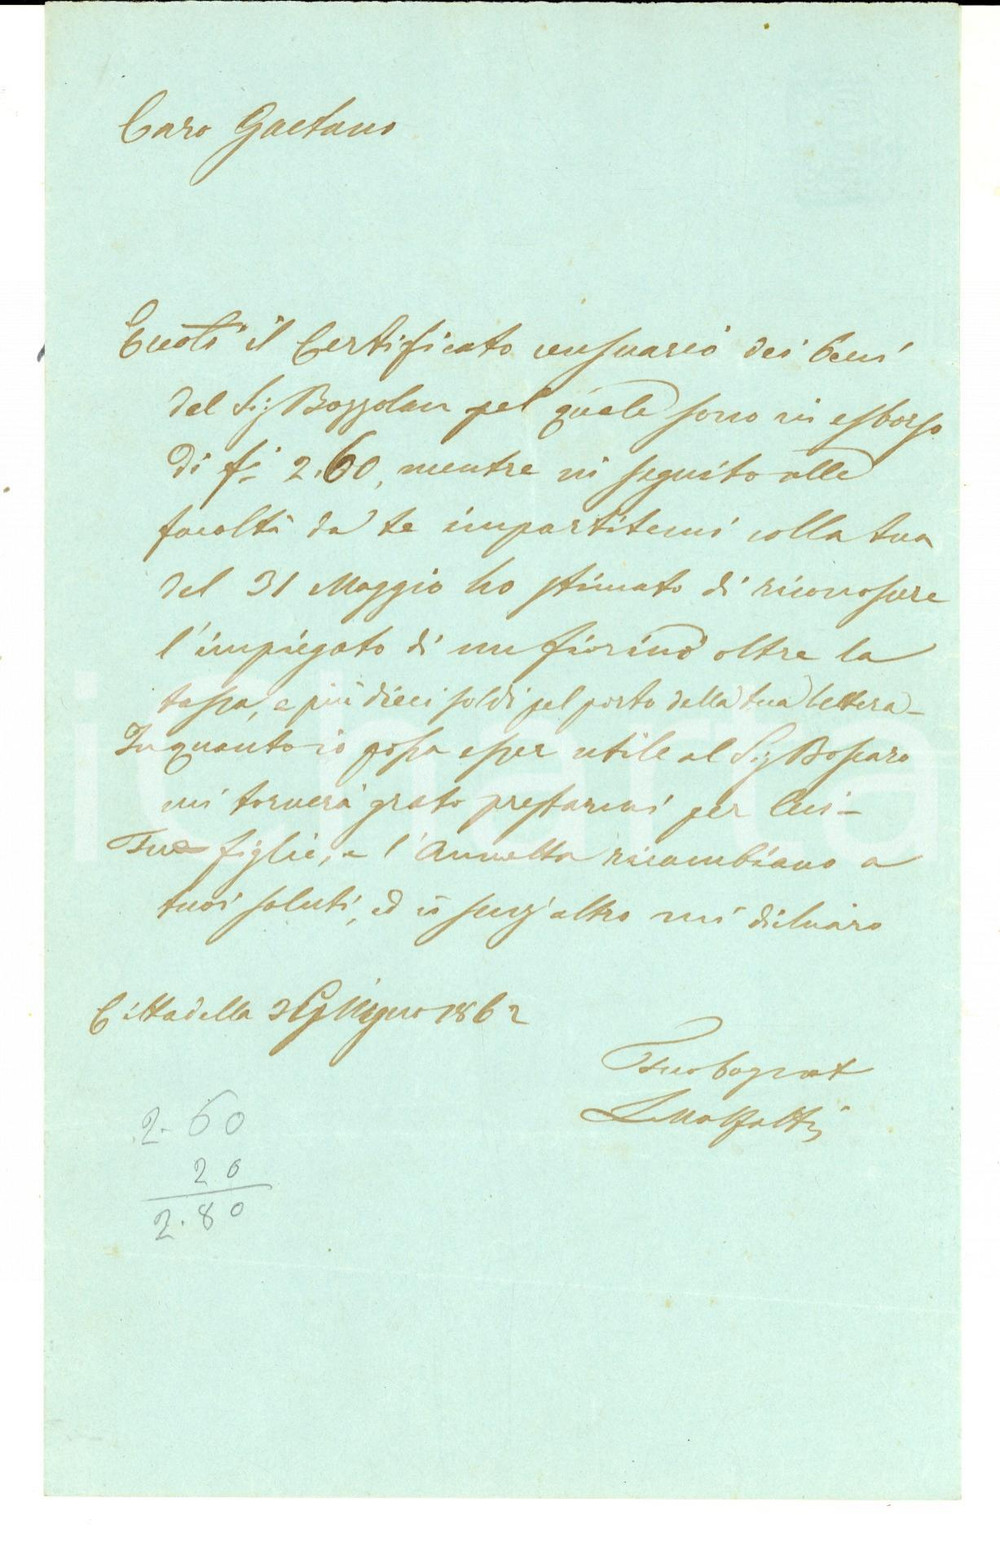 Caro Gaetano
Eccoti il Certificato censuario dei beni
del Sig Bozzolan pel quale sono in esborso
di f.i 2.60, mentre in seguito alle
facoltà da te impartitemi colla tua
del 31 Maggio ho stimato di riconoscere
l'impiegato di un fiorino oltre la
tassa, e più dieci soldi pel porto della tua lettera_
In quanto io possa esser utile al Sig Boscaro
mi tornerà grato prestarmi per Lui_
Tue figlie, e l'Annetta ricambiano a
tuoi saluti, ed io senz'altro mi dichiaro
Cittadella 2 Giugno 1862
Tuo Cognat
2.60
20
2.80
iCharta